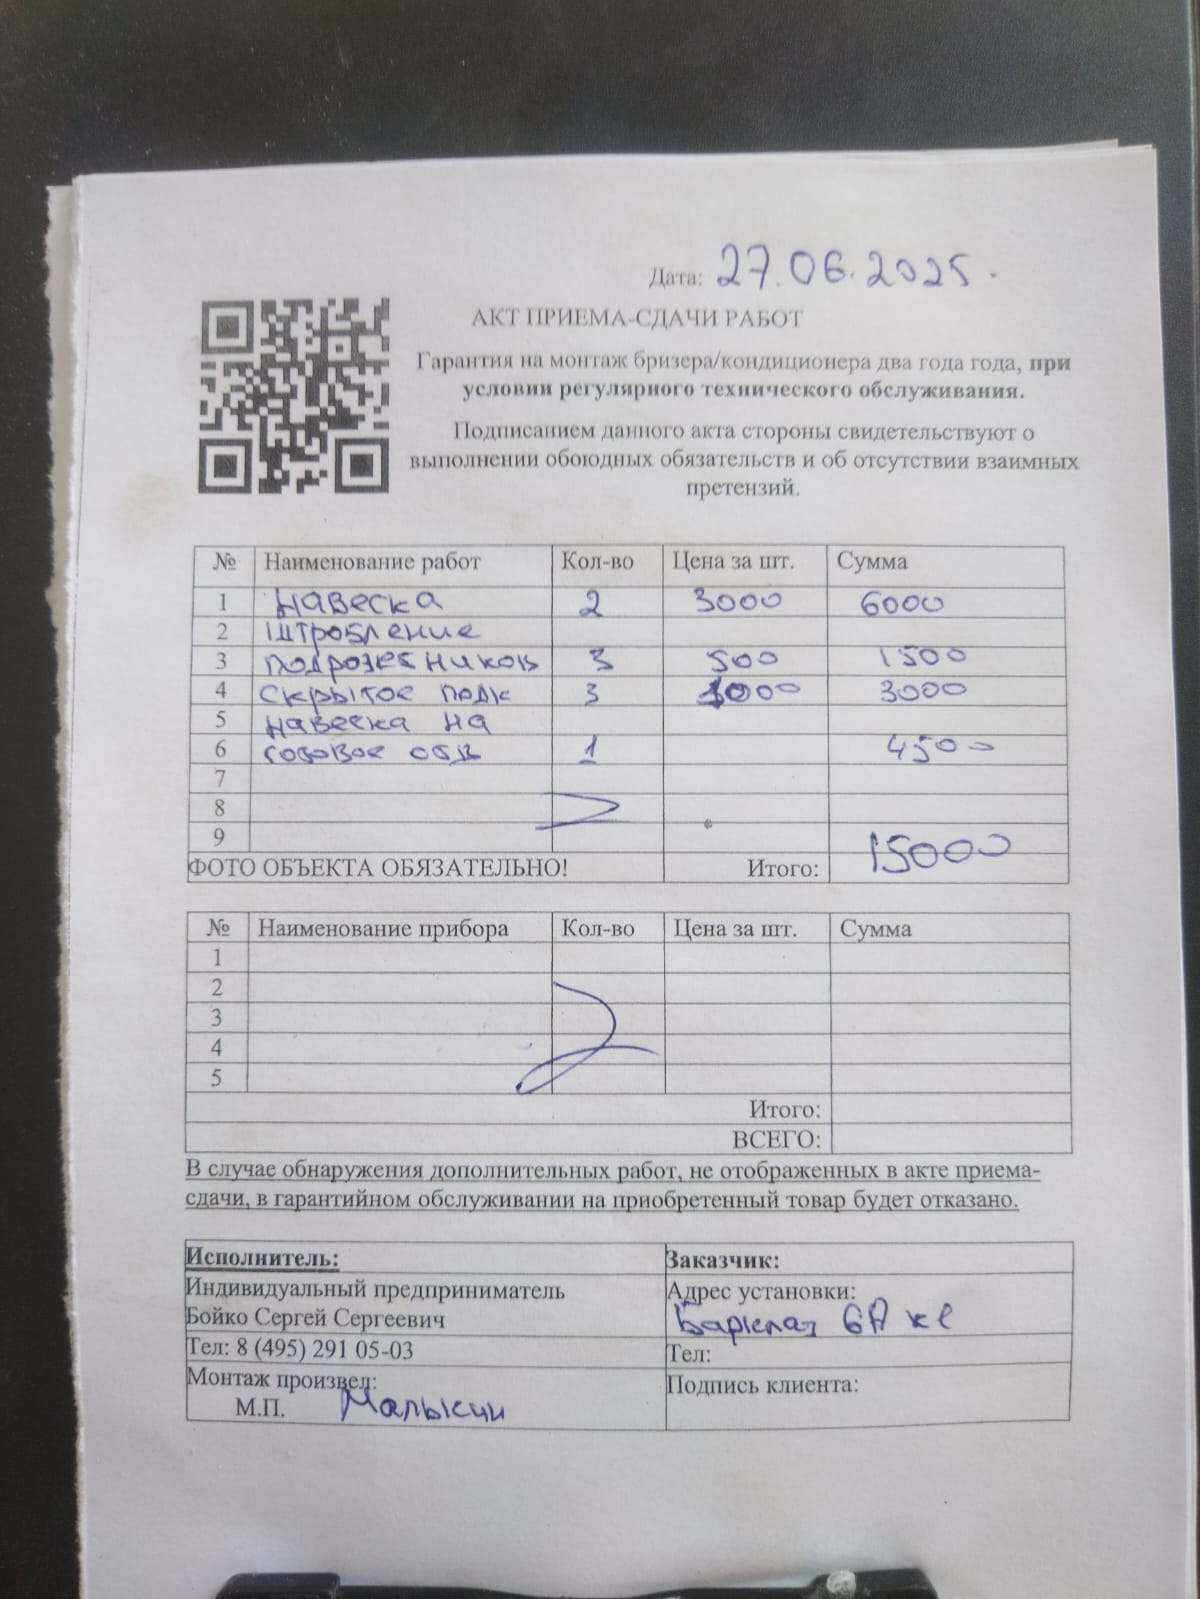 Дата: 27.06.2025.
АКТ ПРИЕМА-СДАЧИ РАБОТ
Гарантия на монтаж бризера/кондиционера два года года, при
условии регулярного технического обслуживания.
Подписанием данного акта стороны свидетельствуют о
выполнении обоюдных обязательств и об отсутствии взаимных
претензий.
№ Наименование работ Кол-во Цена за шт. Сумма
1 Навеска 2 3000 6000
2 Штробление
3 подрозетников 3 500 1500
4 скрытое подк 3 1000 3000
5 навеска на
6 готовое обв 1 4500
7
8
9
15000
ФОТО ОБЪЕКТА ОБЯЗАТЕЛЬНО! Итого:
№ Наименование прибора Кол-во Цена за шт. Сумма
1
2
3
4
5
Итого:
ВСЕГО:
В случае обнаружения дополнительных работ, не отображенных в акте приема-
сдачи, в гарантийном обслуживании на приобретенный товар будет отказано.
Исполнитель: Заказчик:
Индивидуальный предприниматель Адрес установки:
Бойко Сергей Сергеевич Барклая 6А
Тел: 8 (495) 291 05-03 Тел:
Монтаж произвел: Подпись клиента:
М.П. Малыкин